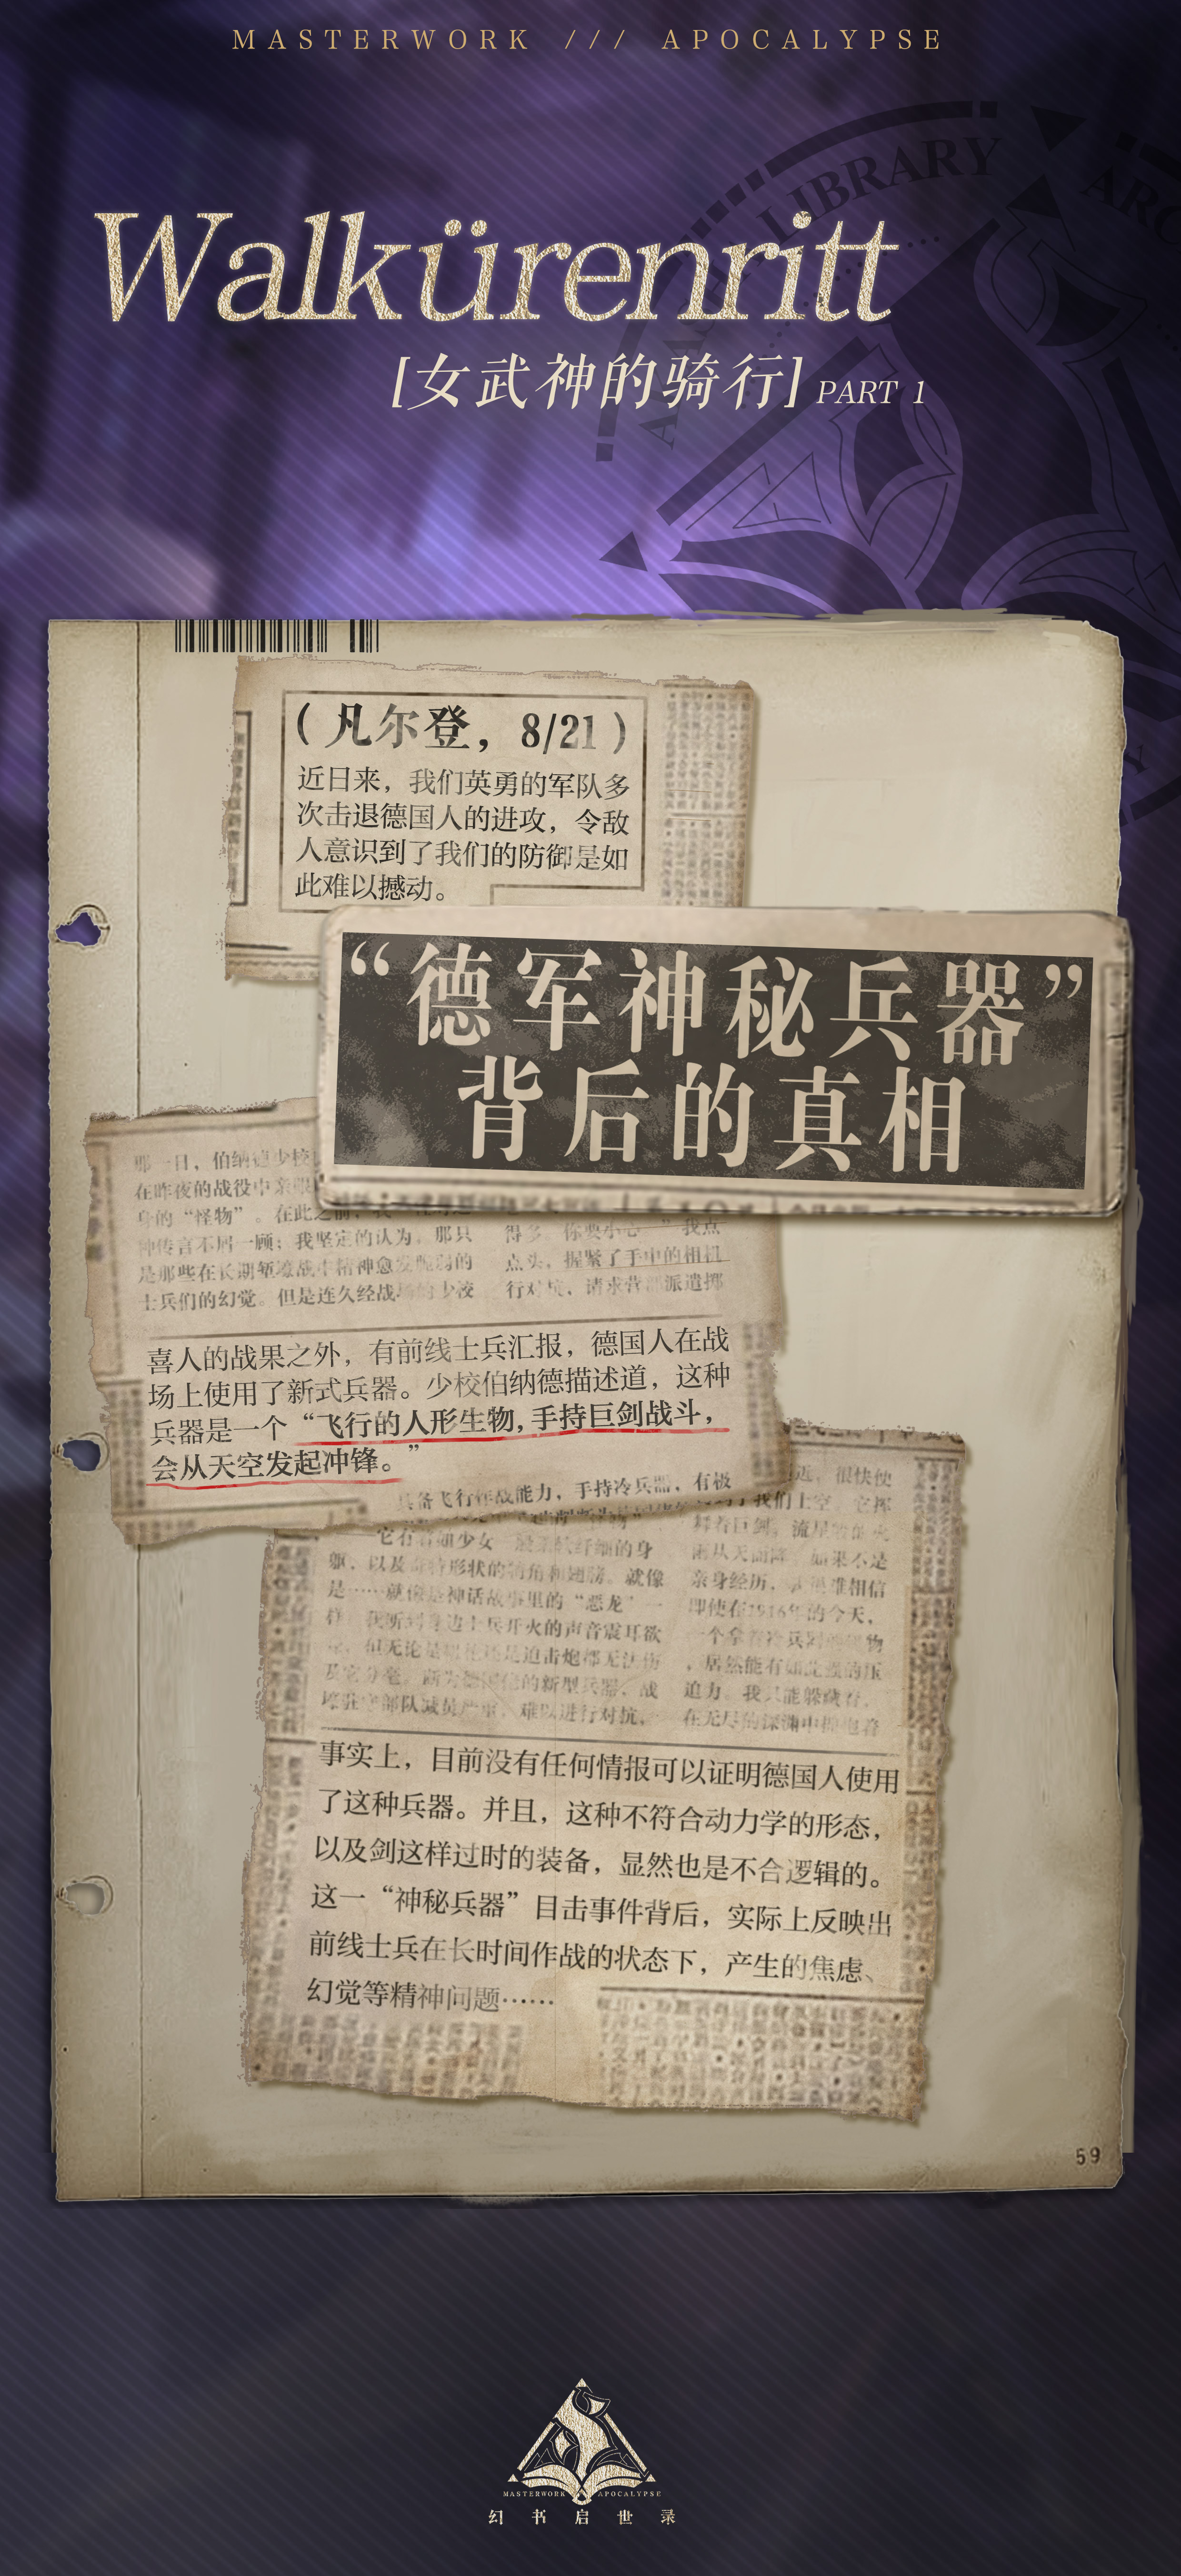 MASTERWORK /// APOCALYPSE
LIBRARY
Walkürenritt
[女武神的骑行] PART 1
(凡尔登，8/21)
近日来，我们英勇的军队多
次击退德国人的进攻，令敌
人意识到了我们的防御是如
此难以撼动。
“德军神秘兵器”
背后的真相
那一日，伯纳德少校
在昨夜的战役中亲眼
身的“怪物”。在此之前，我
种传言不屑一顾；我坚定的认为。那只
是那些在长期堑壕战中精神愈发脆弱的
士兵们的幻觉。但是连久经战场的少校
得多。你要小心…”我点
点头，握紧了手中的相机
行对抗，请求营部派遣挪
喜人的战果之外，有前线士兵汇报，德国人在战
场上使用了新式兵器。少校伯纳德描述道，这种
兵器是一个“飞行的人形生物，手持巨剑战斗，
会从天空发起冲锋。”
具备飞行作战能力，手持冷兵器，有极
它有着如少女一般柔软纤细的身
躯，以及奇特形状的犄角和翅膀。就像
是……就像是神话故事里的“恶龙”一
样。我听到身边士兵开火的声音震耳欲
的新型兵器，战
壕驻守部队减员严重，难以进行对抗，
远，很快便
我们上空，它挥
舞着巨剑。流星般的火
雨从天而降，如果不是
亲身经历，真难相信
即使在1916年的今天，
，居然能有如此强的压
迫力。我只能躲藏着，
在无尽的深渊中抱着
事实上，目前没有任何情报可以证明德国人使用
了这种兵器。并且，这种不符合动力学的形态，
以及剑这样过时的装备，显然也是不合逻辑的。
这一“神秘兵器”目击事件背后，实际上反映出
前线士兵在长时间作战的状态下，产生的焦虑、
幻觉等精神问题……
59
MASTERWORK APOCALYPSE
幻书启世录